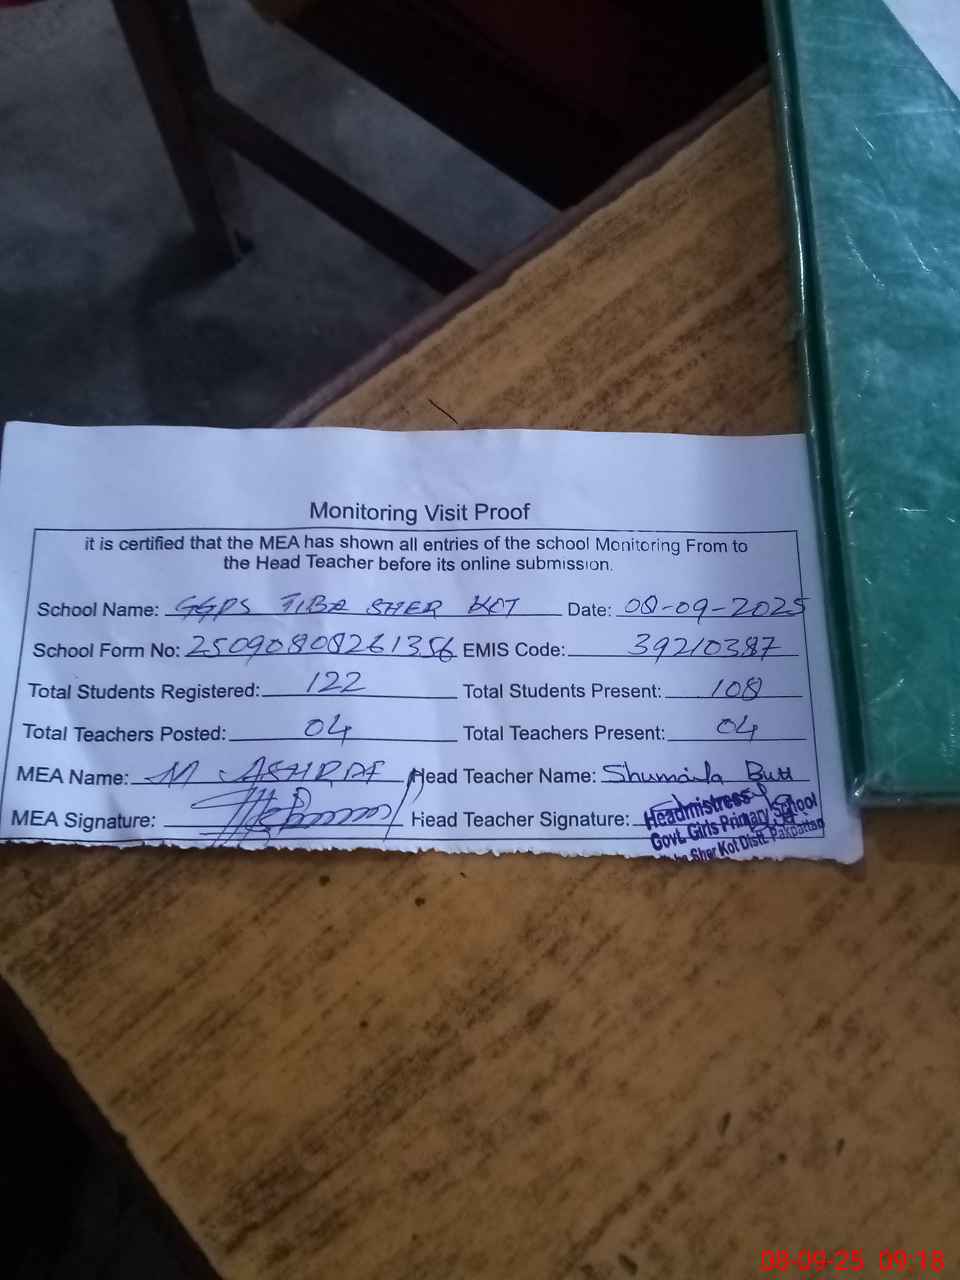 Monitoring Visit Proof
it is certified that the MEA has shown all entries of the school Monitoring From to
the Head Teacher before its online submission.
School Name: GGPS TIBA SHER KOT Date: 08-09-2025
School Form No: 25090808261356 EMIS Code: 39210387
Total Students Registered: 122 Total Students Present: 108
Total Teachers Posted: 04 Total Teachers Present: 04
MEA Name: M ASHRAF Head Teacher Name: Shumaila Butt
MEA Signature: Head Teacher Signature:
Headmistress
Govt. Girls Primary School
Sher Kot Distt. Pakpattan
08-09-25 09:18